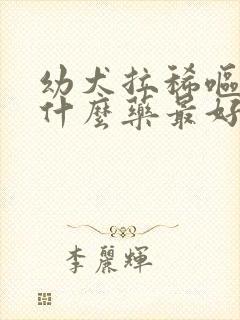 幼犬拉稀嘔
什麼藥最好
李麗輝